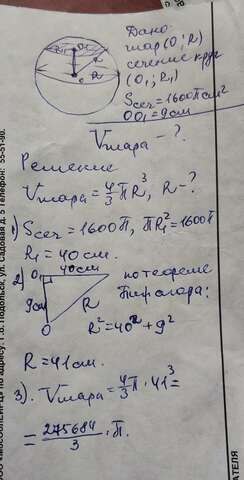 Дано
шар (O; R)
сечение круг
(O₁; R₁)
Sсеч = 1600π см²
OO₁ = 9 см
Vшара - ?
O₁
R₁
R
O
Решение
Vшара = 4/3 πR³, R - ?
1) Sсеч = 1600π, πR₁² = 1600π
R₁ = 40 см.
2) O₁ 40см
9см
R
O
по теореме
Пифагора:
R² = 40² + 9²
R = 41 см.
3). Vшара = 4/3 π · 41³ =
= 275684/3 · π.
г. Подольск, ул. Садовая д. 5 Телефон: 55-51-80.